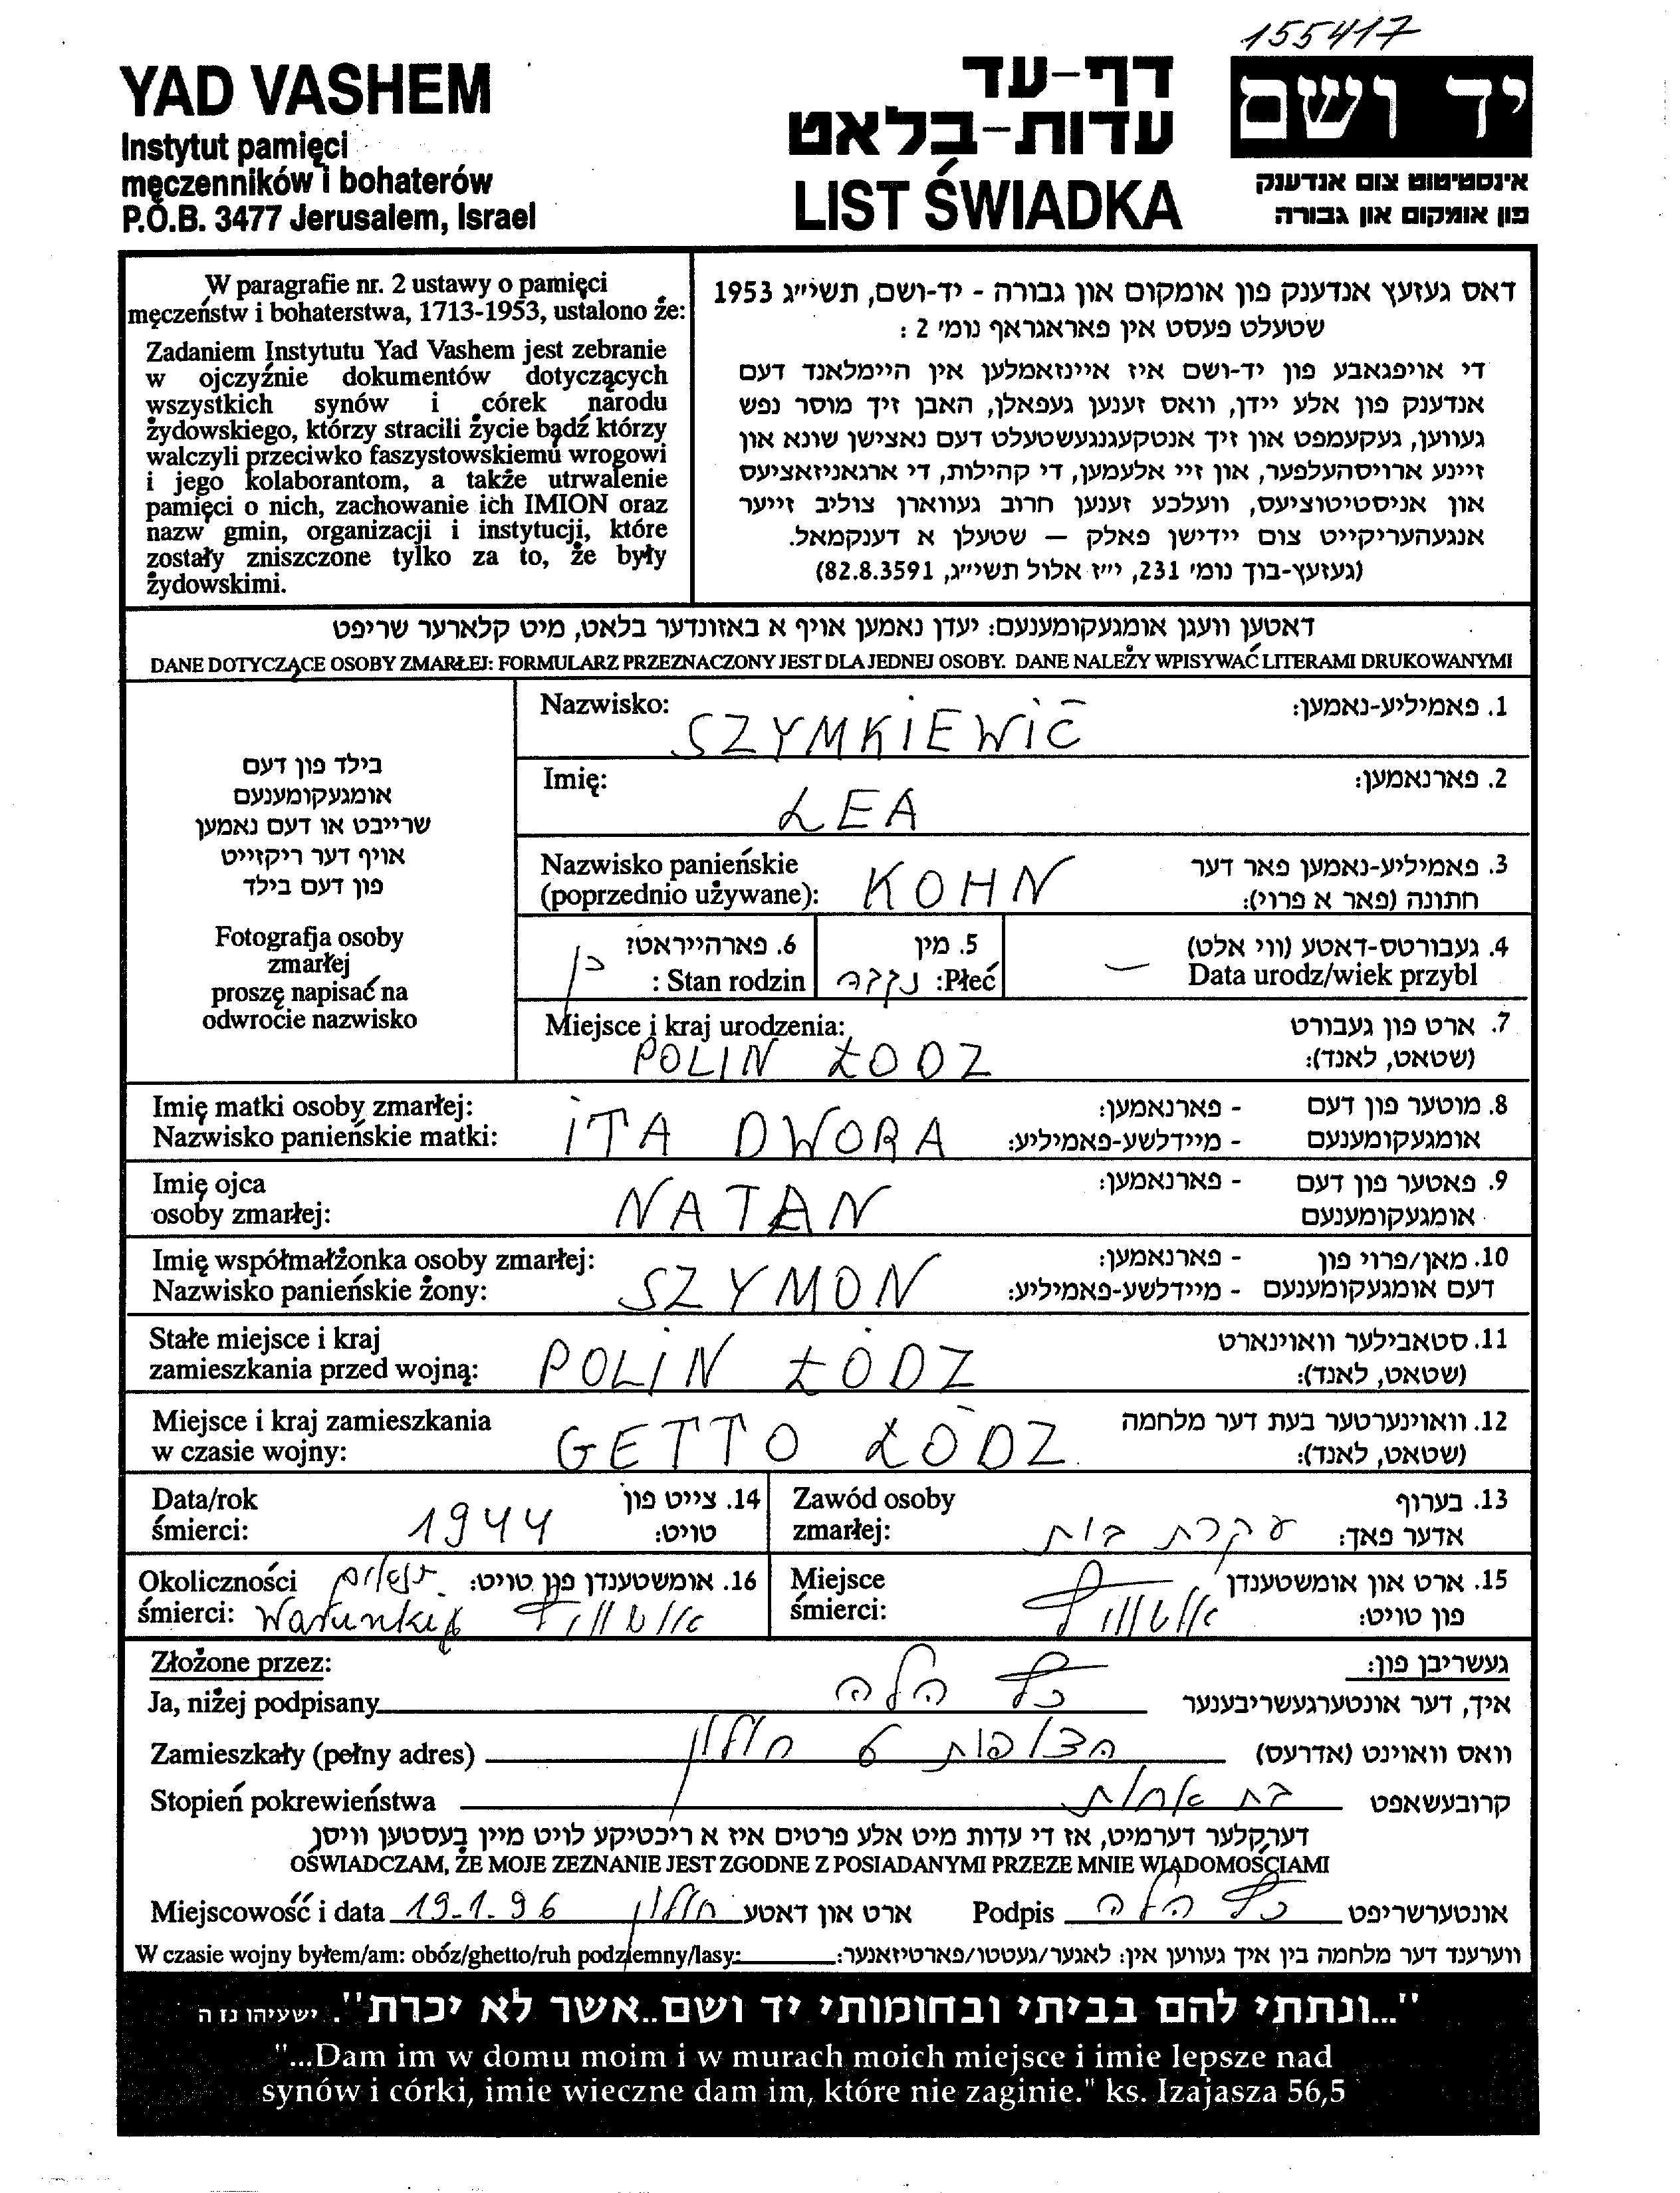 155417
YAD VASHEM
Instytut pamięci
męczenników i bohaterów
P.O.B. 3477 Jerusalem, Israel
דף-עד
עדות-בלאט
LIST ŚWIADKA
יד ושם
אינסטיטוט צום אנדענק
פון אומקום און גבורה
W paragrafie nr. 2 ustawy o pamięci
męczeństw i bohaterstwa, 1713-1953, ustalono że:
Zadaniem Instytutu Yad Vashem jest zebranie
w ojczyźnie dokumentów dotyczących
wszystkich synów i córek narodu
żydowskiego, którzy stracili życie bądź którzy
walczyli przeciwko faszystowskiemu wrogowi
i jego kolaborantom, a także utrwalenie
pamięci o nich, zachowanie ich IMION oraz
nazw gmin, organizacji i instytucji, które
zostały zniszczone tylko za to, że były
żydowskimi.
דאס געזעץ אנדענק פון אומקום און גבורה - יד-ושם, תשי״ג 1953
שטעלט פעסט אין פאראגראף נומ׳ 2 :
די אויפגאבע פון יד-ושם איז איינזאמלען אין היימלאנד דעם
אנדענק פון אלע יידן, וואס זענען געפאלן, האבן זיך מוסר נפש
געווען, געקעמפט און זיך אנטקעגנגעשטעלט דעם נאצישן שונא און
זיינע ארויסהעלפער, און זיי אלעמען, די קהילות, די ארגאניזאציעס
און אניסטיטוציעס, וועלכע זענען חרוב געווארן צוליב זייער
אנגעהעריקייט צום יידישן פאלק — שטעלן א דענקמאל.
(געזעץ-בוך נומ׳ 231, י״ז אלול תשי״ג, 82.8.3591)
דאטען וועגן אומגעקומענעם: יעדן נאמען אויף א באזונדער בלאט, מיט קלארער שריפט
DANE DOTYCZĄCE OSOBY ZMARŁEJ: FORMULARZ PRZEZNACZONY JEST DLA JEDNEJ OSOBY. DANE NALEŻY WPISYWAĆ LITERAMI DRUKOWANYMI
בילד פון דעם
אומגעקומענעם
שרייבט או דעם נאמען
אויף דער ריקזייט
פון דעם בילד
Fotografja osoby
zmarłej
proszę napisać na
odwrocie nazwisko
Nazwisko: SZYMKIEWIC 1. פאמיליע-נאמען:
Imię: LEA 2. פארנאמען:
Nazwisko panieńskie 3. פאמיליע-נאמען פאר דער
(poprzednio używane): KOHN חתונה (פאר א פרוי):
6. פארהייראט? 5. מין 4. געבורטס-דאטע (ווי אלט)
כן : Stan rodzin נקבה :Płeć — Data urodz/wiek przybl
Miejsce i kraj urodzenia: 7. ארט פון געבורט
POLIN ŁODZ (שטאט, לאנד):
Imię matki osoby zmarłej: - פארנאמען: 8. מוטער פון דעם
Nazwisko panieńskie matki: ITA DWORA - מיידלשע-פאמיליע: אומגעקומענעם
Imię ojca - פארנאמען: 9. פאטער פון דעם
osoby zmarłej: NATAN אומגעקומענעם
Imię współmałżonka osoby zmarłej: - פארנאמען: 10. מאן/פרוי פון
Nazwisko panieńskie żony: SZYMON - מיידלשע-פאמיליע: דעם אומגעקומענעם
Stałe miejsce i kraj 11. סטאבילער וואוינארט
zamieszkania przed wojną: POLIN ŁÓDZ (שטאט, לאנד):
Miejsce i kraj zamieszkania 12. וואוינערטער בעת דער מלחמה
w czasie wojny: GETTO ŁÓDZ (שטאט, לאנד):
Data/rok 14. צייט פון Zawód osoby 13. בערוף
śmierci: 1944 טויט: zmarłej: עקרת בית אדער פאך:
Okoliczności 16. אומשטענדן פון טויט: Miejsce 15. ארט און אומשטענדן
śmierci: Warunki אושוויץ śmierci: אושוויץ פון טויט:
Złożone przez: געשריבן פון:
Ja, niżej podpisany הלה איך, דער אונטערגעשריבענער
Zamieszkały (pełny adres) 6 חולון וואס וואוינט (אדרעס)
Stopień pokrewieństwa בת אחות קרובעשאפט
דערקלער דערמיט, אז די עדות מיט אלע פרטים איז א ריכטיקע לויט מיין בעסטען וויסן
OŚWIADCZAM, ŻE MOJE ZEZNANIE JEST ZGODNE Z POSIADANYMI PRZEZE MNIE WIADOMOŚCIAMI
Miejscowość i data 19.1.96 חולון ארט און דאטע Podpis הלה אונטערשריפט
W czasie wojny byłem/am: obóz/ghetto/ruh podziemny/lasy: ווערענד דער מלחמה בין איך געווען אין: לאגער/געטטו/פארטיזאנער:
"...ונתתי להם בביתי ובחומותי יד ושם..אשר לא יכרת". ישעיהו נז ה
"...Dam im w domu moim i w murach moich miejsce i imie lepsze nad
synów i córki, imie wieczne dam im, które nie zaginie." ks. Izajasza 56,5